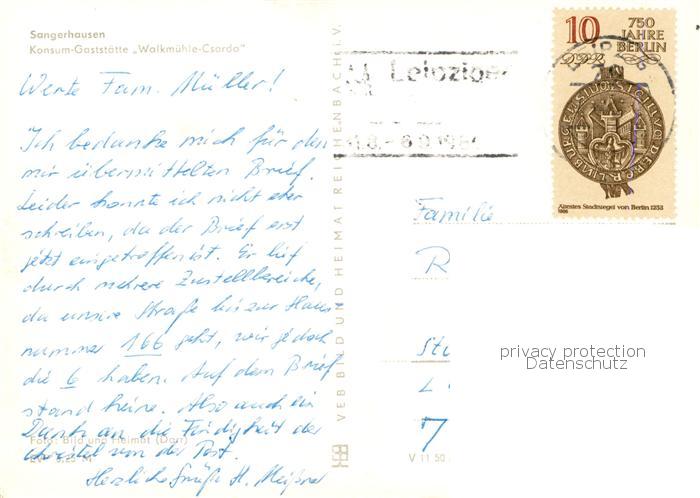 Sangerhausen
Konsum-Gaststätte „Walkmühle-Csarda"
Werte Fam. Müller!
Ich bedanke mich für den
mir übermittelten Brief.
Leider konnte ich nicht eher
schreiben, da der Brief erst
jetzt eingetroffen ist. Er lief
durch mehrere Zustellbereiche,
da unsere Straße bis zur Haus
nummer 166 geht, wir jedoch
die 6 haben. Auf dem Brief
stand keine. Also auch ein
Dank an die Findigkeit der
Christel von der Post.
Herzliche Grüße H. Meißner
Foto: Bild und Heimat (Darr)
VEB BILD UND HEIMAT REICHENBACH i. V.
V 11 50
Leipziger
10
750
JAHRE
BERLIN
DDR
Ältestes Stadtsiegel von Berlin 1253
1986
Familie
R
St
L
7
privacy protection
Datenschutz